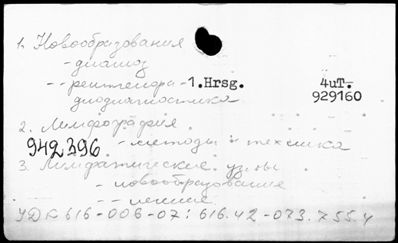 1. Новообразования
- диагноз
-- рентгено- 1.Hrsg. 4uT.
диодиагностика 929160
2. Лимфография.
942396. - методы и техника
3. Лимфатические узлы
- новообразование
-- лечение.
УДК 616-006-07: 616.42-073.755.4